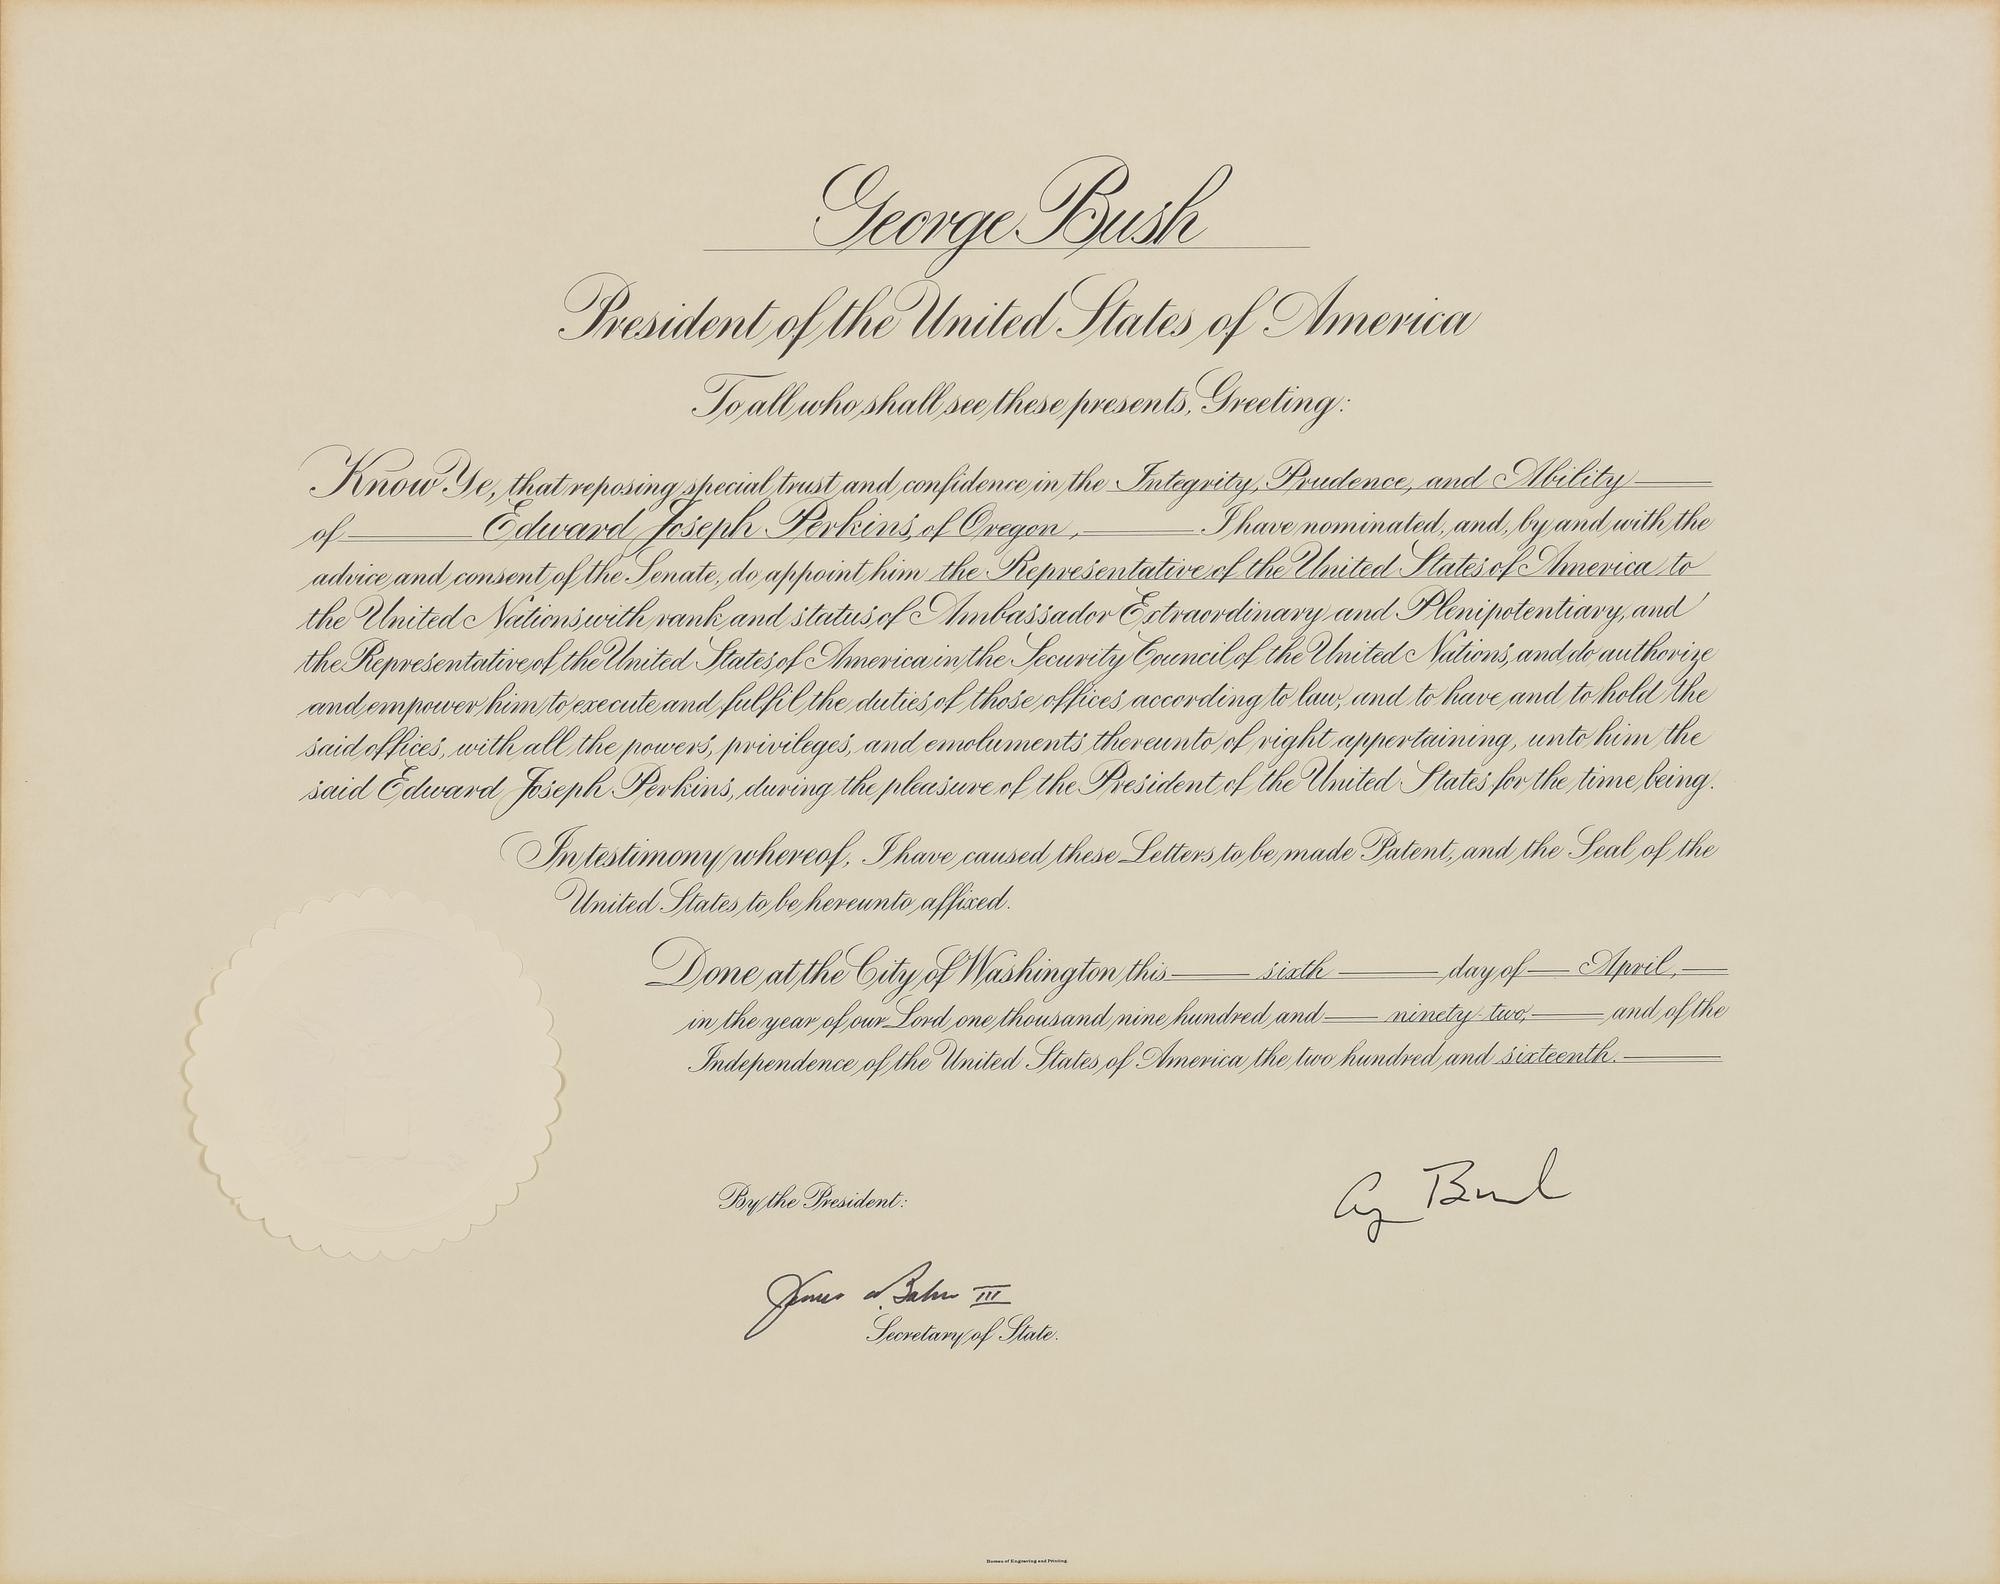 George Bush
President of the United States of America
To all who shall see these presents, Greeting:
Know Ye, that reposing special trust and confidence in the Integrity, Prudence, and Ability
of Edward Joseph Perkins, of Oregon, I have nominated, and, by and with the
advice and consent of the Senate, do appoint him the Representative of the United States of America to
the United Nations with rank and status of Ambassador Extraordinary and Plenipotentiary, and
the Representative of the United States of America in the Security Council of the United Nations, and do authorize
and empower him to execute and fulfil the duties of those offices according to law, and to have and to hold the
said offices, with all the powers, privileges, and emoluments thereunto of right appertaining, unto him the
said Edward Joseph Perkins, during the pleasure of the President of the United States for the time being.
In testimony whereof, I have caused these Letters to be made Patent, and the Seal of the
United States to be hereunto affixed.
Done at the City of Washington this sixth day of April,
in the year of our Lord one thousand nine hundred and ninety-two, and of the
Independence of the United States of America the two hundred and sixteenth.
G Bush
By the President:
James A. Baker III
Secretary of State.
Bureau of Engraving and Printing